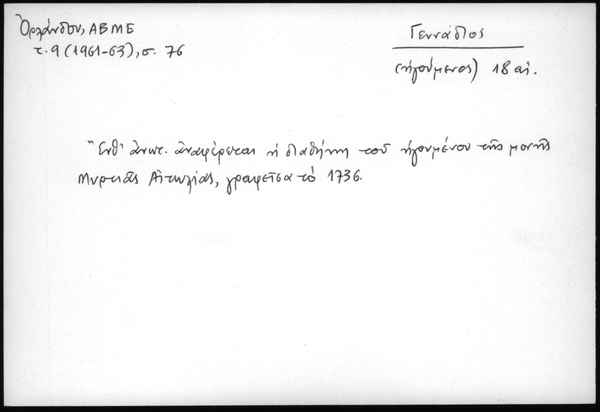 Ὀρλάνδου, ΑΒΜΕ
τ. 9 (1961-63), σ. 76
Γεννάδιος
(ἡγούμενος) 18 αἰ.
Ἔνθ' ἀνωτ. ἀναφέρεται ἡ διαθήκη τοῦ ἡγουμένου τῆς μονῆς
Μυρτιᾶς Αἰτωλίας, γραφεῖσα τὸ 1736.